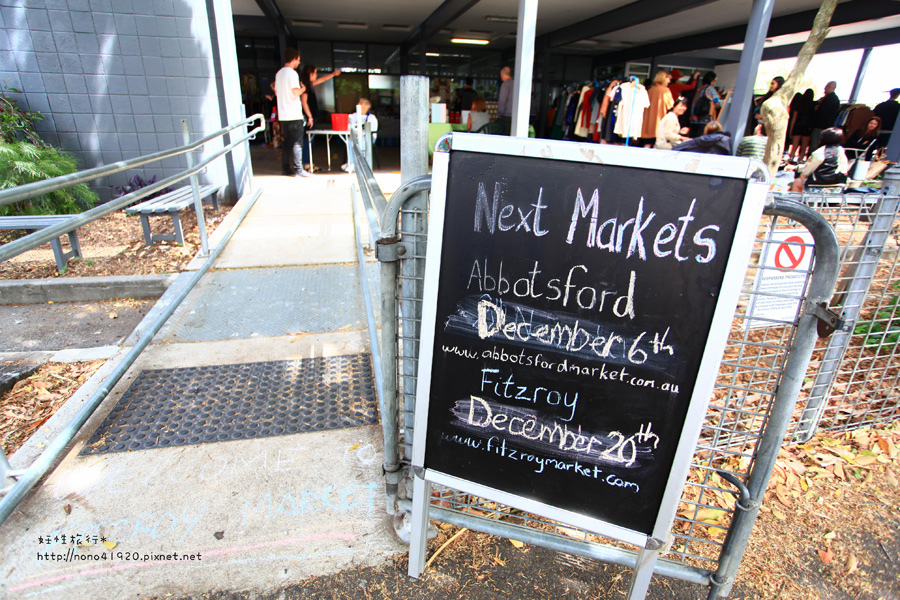 Next Markets
Abbotsford
December 6th
www.abbotsfordmarket.com.au
Fitzroy
December 20th
www.fitzroymarket.com
TO
MARKET
好性旅行*
http://nono41920.pixnet.net